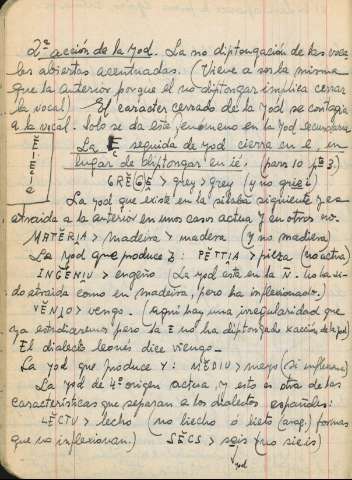 2ª acción de la Yod. La no diptongación de las voca-
les abiertas acentuadas. (Viene a ser la misma
que la anterior porque el no diptongar implica cerrar
la vocal) El caracter cerrado de la yod se contagia
a la vocal. Solo se da este fenómeno en la yod secundaria.
La Ĕ seguida de yod cierra en e, en
lugar de diptongar en ié. (pars 10 pª 3.)
GRĔGE > grey > grey (y no griei)
La yod que existe en la sílaba siguiente y es
atraida a la anterior en unos casos actua y en otros no.
MATĔRIA > madeira > madera (y no madiera)
La yod que produce z: PĔTTIA > pieza (no actua)
INGĔNIU > engeño (La yod está en la Ñ. No ha si-
do atraida como en madeira, pero ha inflexionado.)
VĔNIO > vengo. Aqui hay una irregularidad que
ya estudiaremos pero la E no ha diptongado x acción de la yod
El dialecto leonés dice viengo.
La yod que produce Y: MĔDIU > meyo (si inflexiona)
La yod de 4º origen actua, y esto es otra de las
características que separan a los dialectos españoles:
LĔCTU > lecho (no liecho o lieto (arag.) formas
que no inflexionan.) SĔCS > seis (no sieis)
yod
Ĕ
e